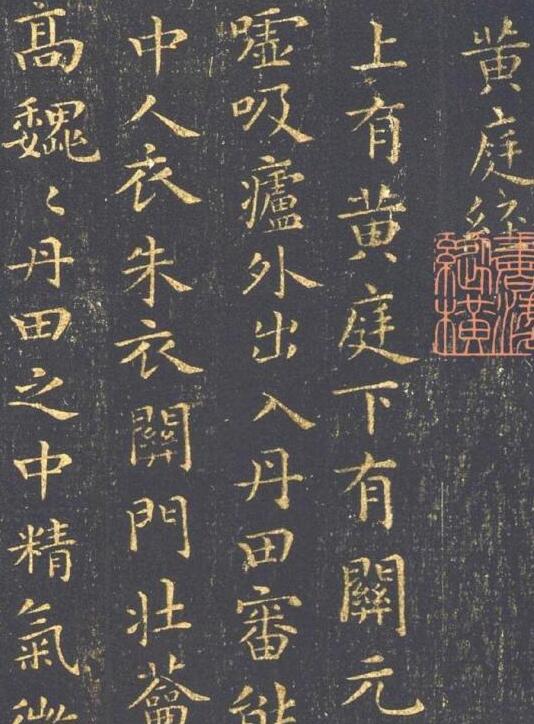 黄庭經
書海縱橫
上有黄庭下有關元
嘘吸廬外出入丹田審能
中人衣朱衣關門壯蘥
高巍〻丹田之中精氣微